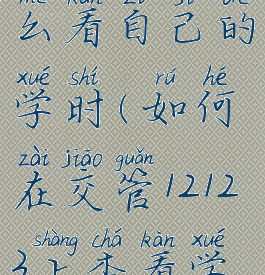 me kàn zì jǐ de
么看自己的
xué shí rú hé
学时(如何
zài jiāo guǎn
在交管1212
shàng chá kàn xué
上查看学